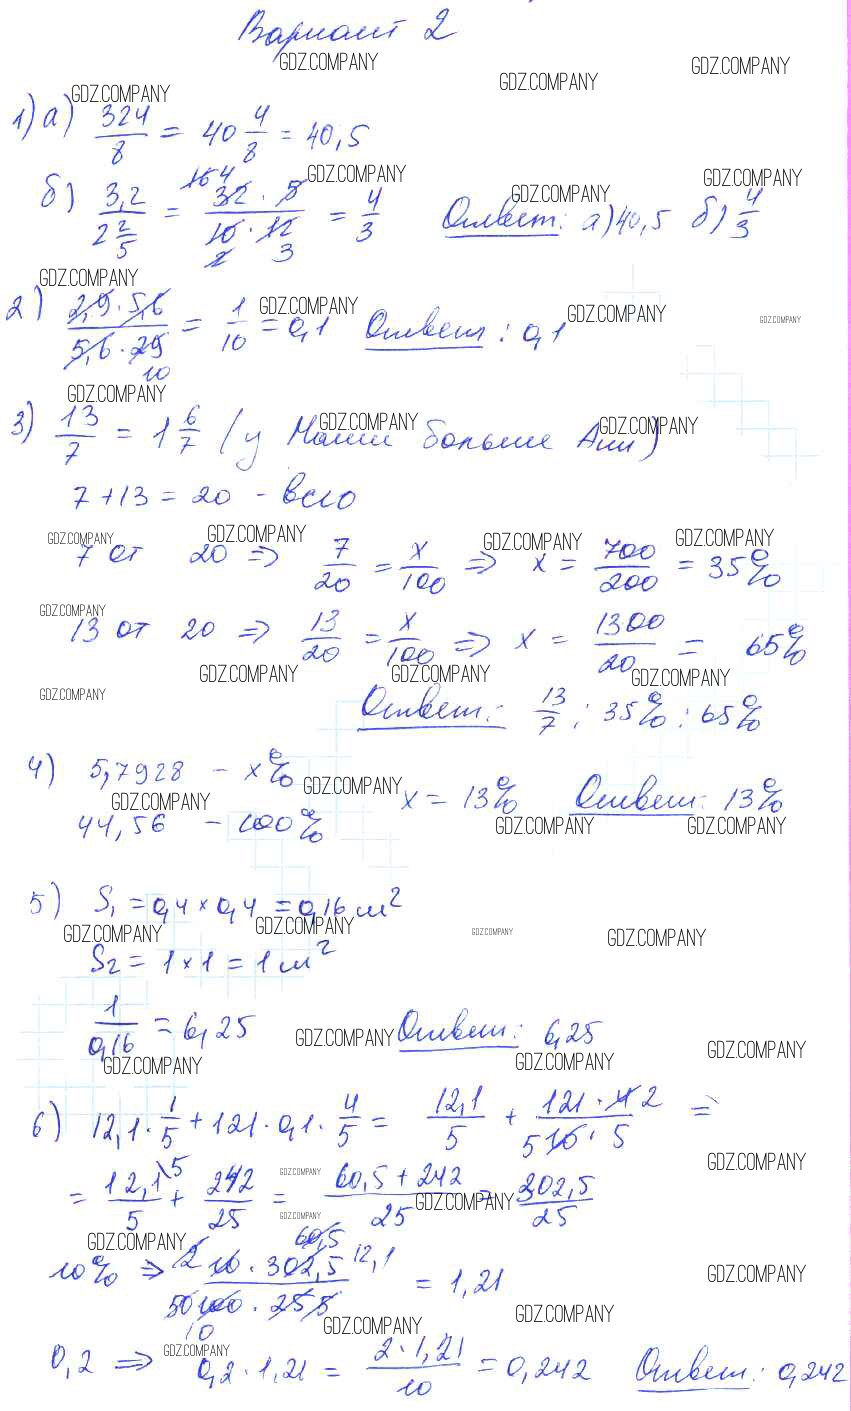 Вариант 2
GDZ.COMPANY GDZ.COMPANY GDZ.COMPANY
GDZ.COMPANY
1) а) 324/8 = 40 4/8 = 40,5
GDZ.COMPANY GDZ.COMPANY GDZ.COMPANY
б) 3,2 / 2 2/5 = 32 · 5 / 10 · 12 = 4/3 Ответ: а) 40,5 б) 4/3
GDZ.COMPANY
2) 2,9 · 5,6 / 5,6 · 29 = 1/10 = 0,1 Ответ: 0,1
GDZ.COMPANY GDZ.COMPANY GDZ.COMPANY
10
GDZ.COMPANY
3) 13/7 = 1 6/7 (у Маши больше Ани)
GDZ.COMPANY GDZ.COMPANY
7 + 13 = 20 - всго
GDZ.COMPANY GDZ.COMPANY GDZ.COMPANY GDZ.COMPANY
7 от 20 ⇒ 7/20 = x/100 ⇒ x = 700/200 = 35%
GDZ.COMPANY
13 от 20 ⇒ 13/20 = x/100 ⇒ x = 1300/20 = 65%
GDZ.COMPANY GDZ.COMPANY GDZ.COMPANY GDZ.COMPANY
Ответ: 13/7 ; 35% ; 65%
4) 5,7928 - x%
GDZ.COMPANY GDZ.COMPANY
x = 13% Ответ: 13%
44,56 - 100%
GDZ.COMPANY GDZ.COMPANY
5) S1 = 0,4 × 0,4 = 0,16 м²
GDZ.COMPANY GDZ.COMPANY GDZ.COMPANY GDZ.COMPANY
S2 = 1 × 1 = 1 м²
1/0,16 = 6,25 Ответ: 6,25
GDZ.COMPANY GDZ.COMPANY GDZ.COMPANY GDZ.COMPANY
6) 12,1 · 1/5 + 121 · 0,1 · 4/5 = 12,1/5 + 121 · 4 2 / 5 10 · 5 =
GDZ.COMPANY
= 12,1\5 / 5 + 242/25 = 60,5 + 242 / 25 = 302,5/25
GDZ.COMPANY GDZ.COMPANY GDZ.COMPANY
GDZ.COMPANY
10% ⇒ 10 · 302,5 12,1 / 100 · 25 = 1,21
GDZ.COMPANY GDZ.COMPANY GDZ.COMPANY
GDZ.COMPANY
0,2 ⇒ 0,2 · 1,21 = 2 · 1,21 / 10 = 0,242 Ответ: 0,242